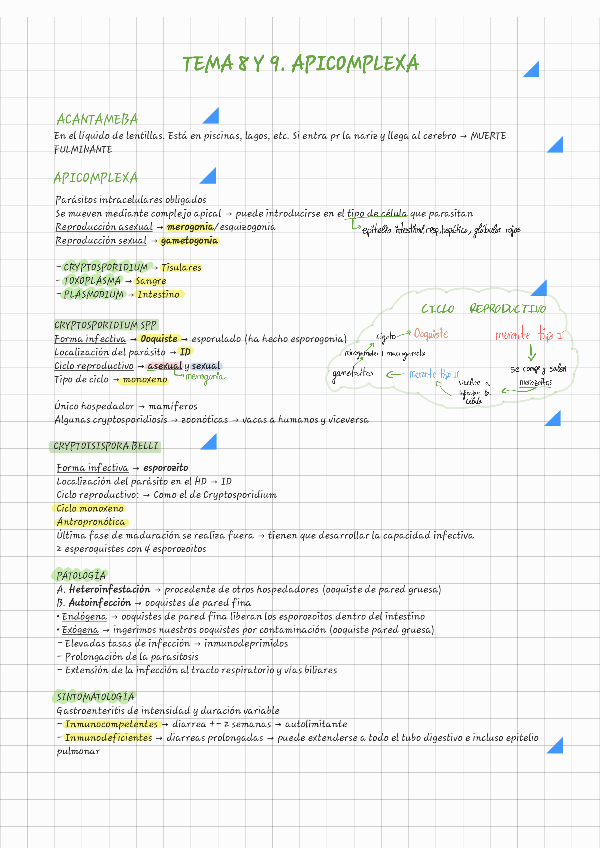 TEMA 8 Y 9. APICOMPLEXA
ACANTAMEBA
En el líquido de lentillas. Está en piscinas, lagos, etc. Si entra pr la nariz y llega al cerebro → MUERTE
FULMINANTE
APICOMPLEXA
Parásitos intracelulares obligados
Se mueven mediante complejo apical → puede introducirse en el tipo de célula que parasitan
Reproducción asexual → merogonia/esquizogonia
epitelio intestinal, resp, hepático, glóbulos rojos
Reproducción sexual → gametogonia
- CRYPTOSPORIDIUM → Tisulares
- TOXOPLASMA → Sangre
- PLASMODIUM → Intestino
CRYPTOSPORIDIUM SPP
Forma infectiva → Ooquiste → esporulado (ha hecho esporogonia)
Localización del parásito → ID
Ciclo reproductivo → asexual y sexual
merogonia
Tipo de ciclo → monoxeno
CICLO REPRODUCTIVO
cigoto → Ooquiste
meronte tipo I
microgameto + macrogameto
se rompe y salen
merozoitos
gametocitos
meronte tipo II
vuelve a
infectar la
célula
Único hospedador → mamíferos
Algunas cryptosporidiosis → zoonóticas → vacas a humanos y viceversa
CRYPTOISISPORA BELLI
Forma infectiva → esporozito
Localización del parásito en el HD → ID
Ciclo reproductivo: → Como el de Cryptosporidium
Ciclo monoxeno
Antropronótica
Última fase de maduración se realiza fuera → tienen que desarrollar la capacidad infectiva
2 esperoquistes con 4 esporozoitos
PATOLOGÍA
A. Heteroinfestación → procedente de otros hospedadores (ooquiste de pared gruesa)
B. Autoinfección → ooquistes de pared fina
• Endógena → ooquistes de pared fina liberan los esporozoitos dentro del intestino
• Exógena → ingerimos nuestros ooquistes por contaminación (ooquiste pared gruesa)
- Elevadas tasas de infección → inmunodeprimidos
- Prolongación de la parasitosis
- Extensión de la infección al tracto respiratorio y vías biliares
SINTOMATOLOGÍA
Gastroenteritis de intensidad y duración variable
- Inmunocompetentes → diarrea +- 2 semanas → autolimitante
- Inmunodeficientes → diarreas prolongadas → puede extenderse a todo el tubo digestivo e incluso epitelio
pulmonar